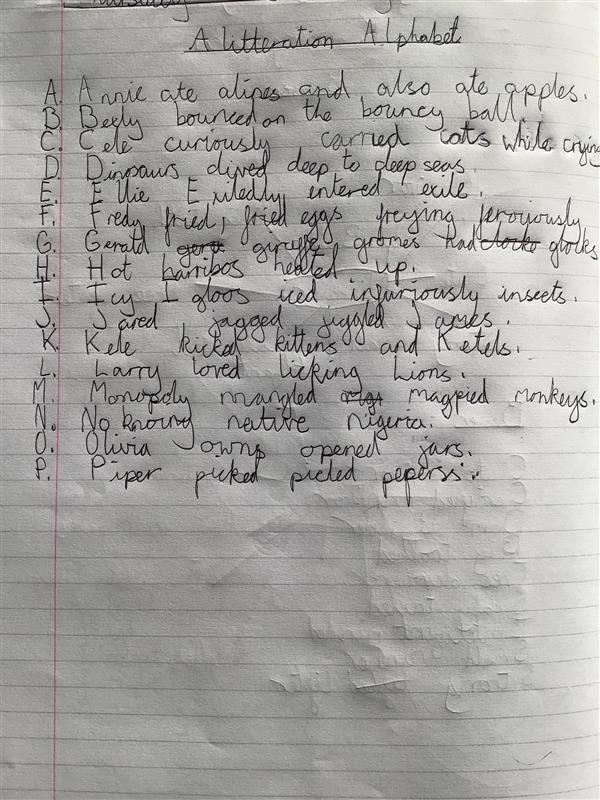 Alitteration Alphabet
A. Annie ate alines and also ate apples.
B. Beely bounced on the bouncy ball.
C. Cele curiously carried cats while crying
D. Dinosaurs dived deep to deep seas.
E. Ellie Exiledly entered exile.
F. Fredy fried, fried eggs freying feroviously
G. Gerald giruffe gromes had glocks
H. Hot harribos heated up.
I. Icy Igloos iced infuriously insects.
J. Jared jagged juggled James.
K. Kele kicked kittens and Ketels.
L. Larry loved licking Lions.
M. Monopoly mangled magpied monkeys.
N. No knowing native nigeria.
O. Olivia owns opened jars.
P. Piper picked picled peperss.